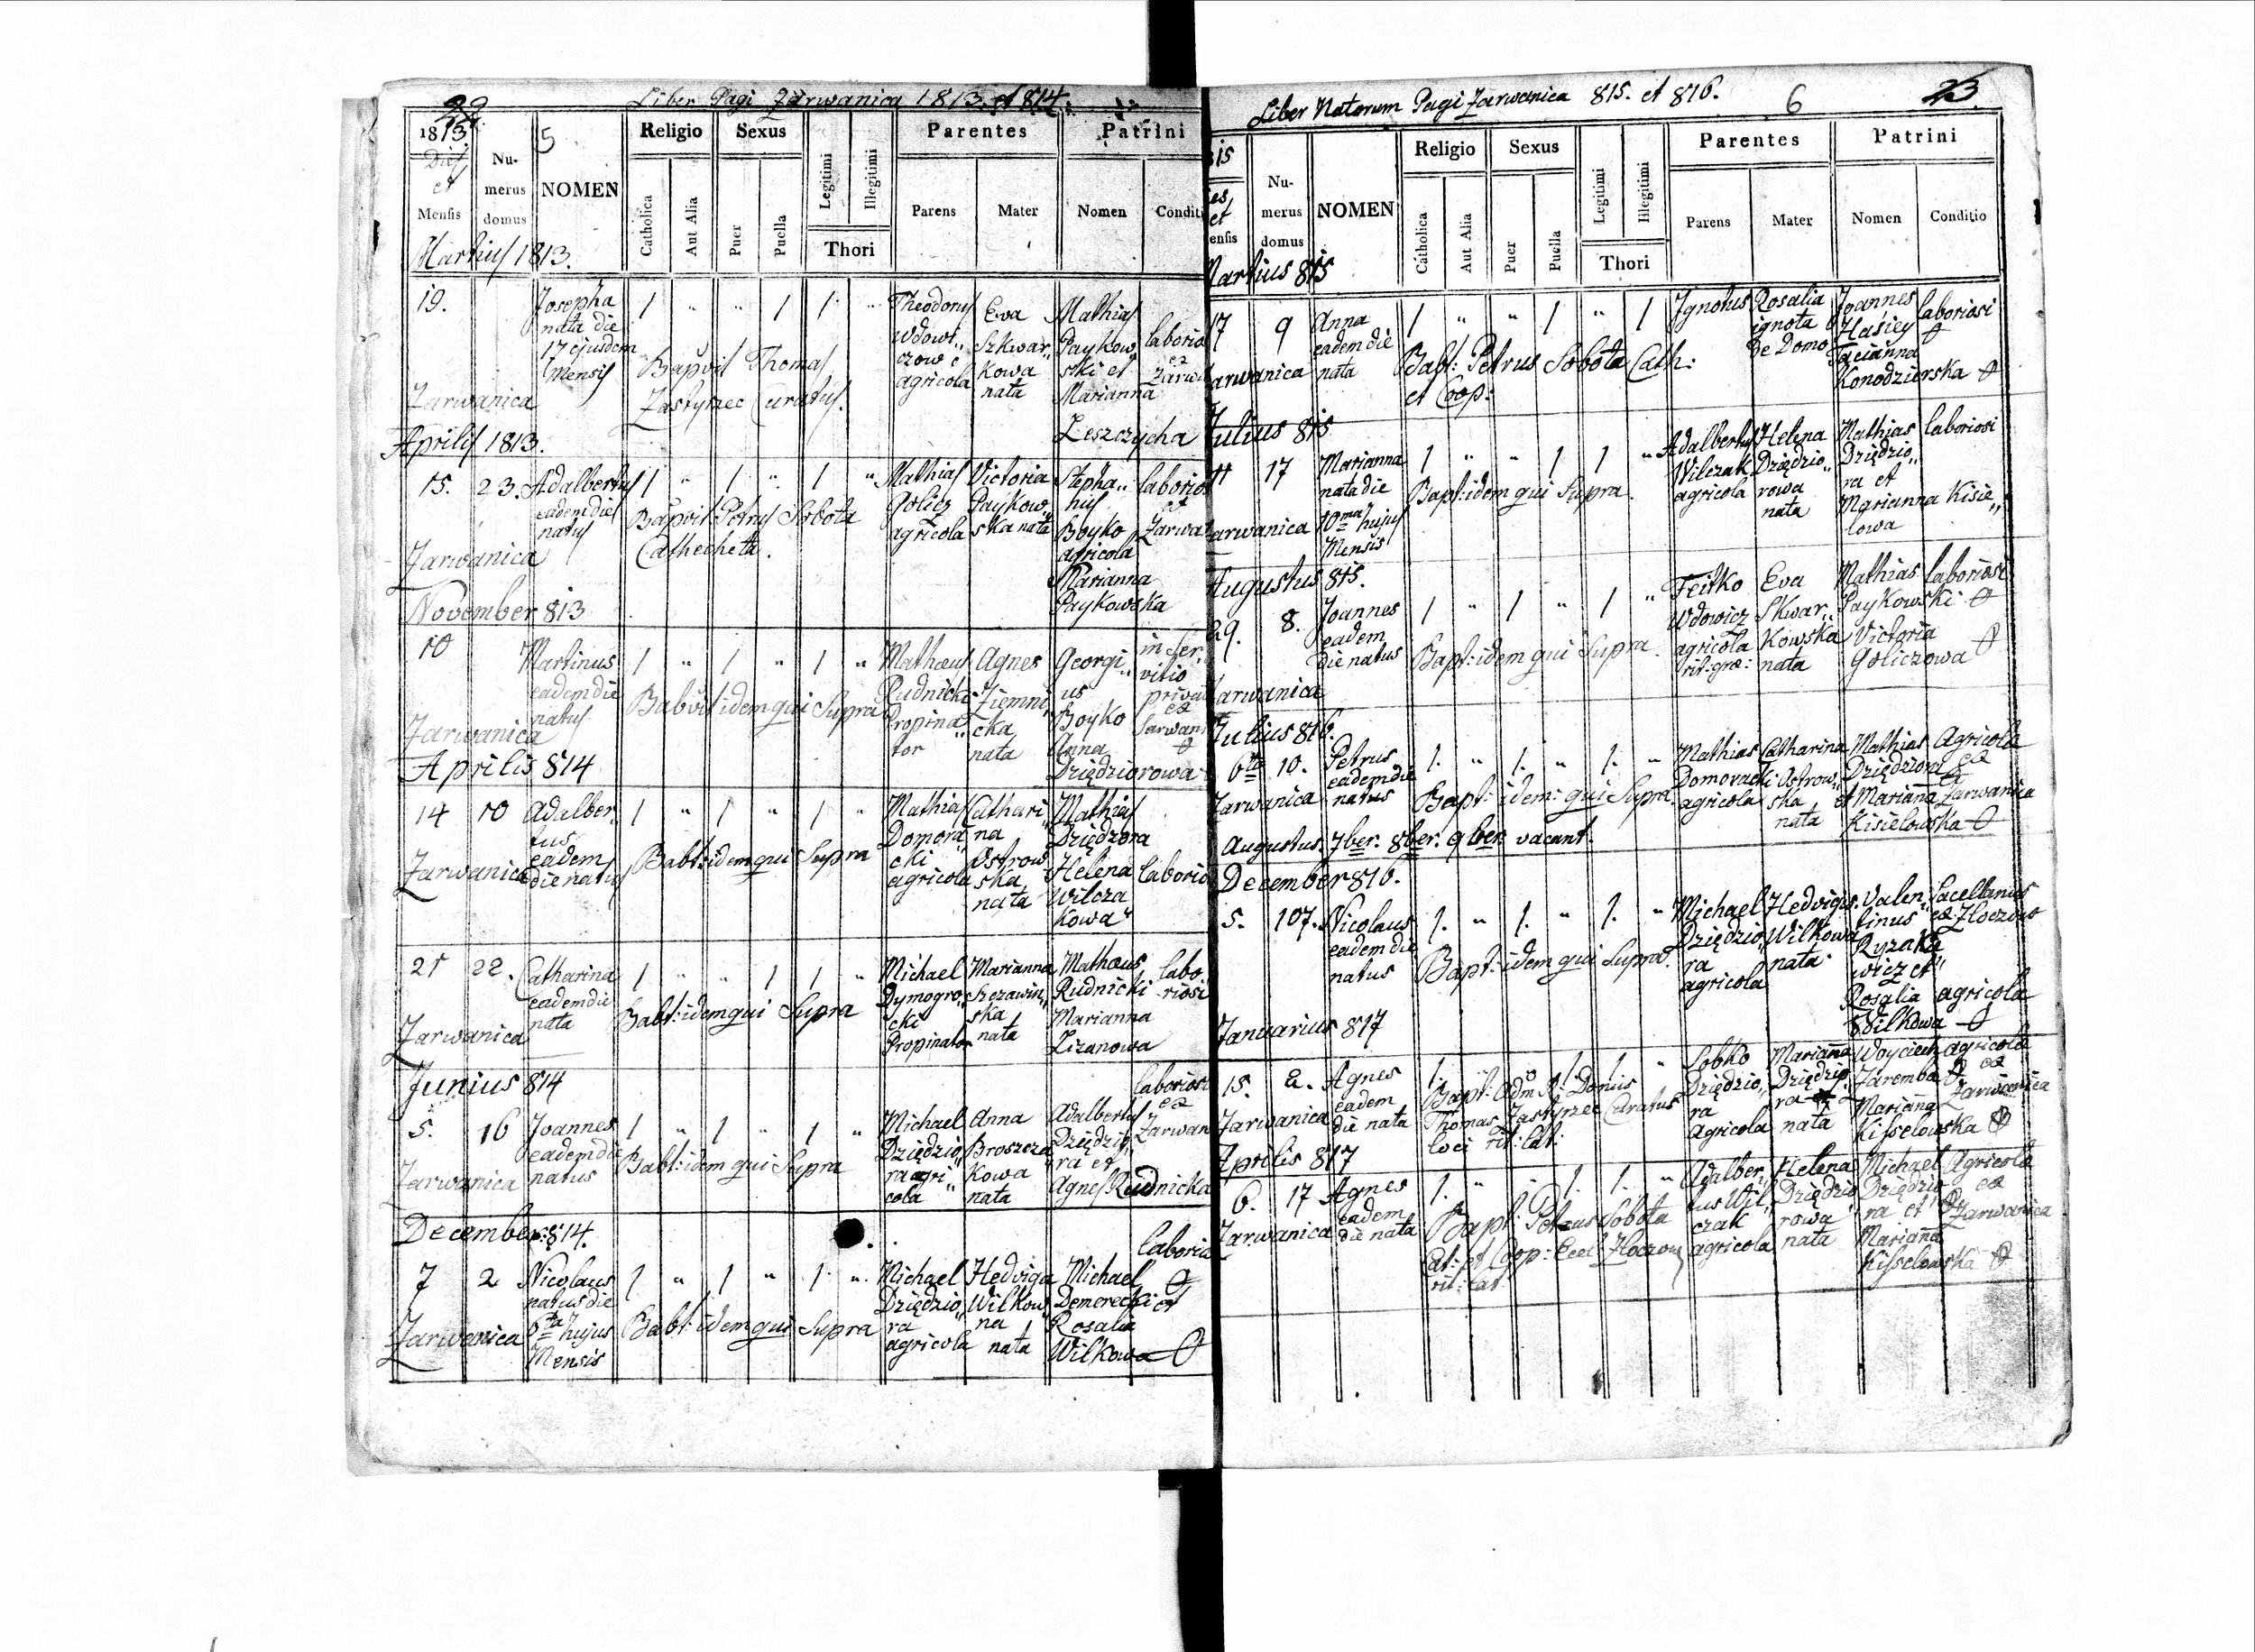 22.
Liber Pagi Zarwanica 1813. et 814.
1813.
Dies et Mensis
Numerus domus
5
NOMEN
Religio
Catholica
Aut Alia
Sexus
Puer
Puella
Legitimi
Illegitimi
Thori
Parentes
Parens
Mater
Patrini
Nomen
Conditi
Martius 1813.
19.
Josepha
nata die
17 ejusdem
Mensis
1 " " 1 1 "
Bapvit Thomas
Zastyrzec Curatus.
Theodorus
Wdowi„
czow
agricola
Eva
Szkwar„
kowa
nata
Mathias
Paykow
ski et
Marianna
Leszczycha
laborio
ex
Zarwa
Zarwanica
Aprilis 1813.
15. 23.
Adalbertus
eadem die
natus
1 " 1 " 1 "
Bapvit Petrus Sobota
Cathecheta.
Mathias
Golicz
agricola
Victoria
Paykow„
ska nata
Stepha„
nus
Boyko
agricola
Marianna
Paykowska
laborio
et
Zarwa
Zarwanica
November 813
10
Martinus
eadem die
natus
1 " 1 " 1 "
Babvit idem qui Supra
Mathæus
Rudnicki
Propina„
tor
Agnes
Ziemni„
cka
nata
Georgi„
us
Boyko
Anna
Dziędziorowa
in Ser„
vitio
priva
ex
Zarwani
Zarwanica
Aprilis 814
14 10
Adalber„
tus
eadem
die natus
1 " 1 " 1 "
Babt: idem qui Supra
Mathias
Domora
cki
agricola
Cathari„
na
Ostrow
ska
nata
Mathias
Dziędziora
Helena
Wilcza
kowa
laborio
Zarwanica
21 22.
Catharina
eadem die
nata
1 " " 1 1 "
Babt: idem qui Supra
Michael
Dymogro„
cki
Propinator
Marianna
Szczawin„
ska
nata
Mathæus
Rudnicki
Marianna
Lizanowa
labo„
riosi
Zarwanica
Junius 814
5. 16
Joannes
eadem die
natus
1 " 1 " 1 "
Babt: idem qui Supra
Michael
Dziędzio„
ra agri„
cola
Anna
Broszcza
kowa
nata
Adalbertus
Dziędzio„
ra et
Agnes Rudnicka
laboriosi
ex
Zarwan
Zarwanica
December 814.
7 2
Nicolaus
natus die
6ta hujus
Mensis
1 " 1 " 1 "
Babt: idem qui Supra
Michael
Dziędzio„
ra
agricola
Hedviga
Wilkow„
na
nata
Michael
Domorecki et
Rosalia
Wilkowa
laborio
Zarwanica
Liber Natorum Pagi Zarwanica 815. et 816.
6
23.
Numerus domus
NOMEN
Religio
Catholica
Aut Alia
Sexus
Puer
Puella
Legitimi
Illegitimi
Thori
Parentes
Parens
Mater
Patrini
Nomen
Conditio
Martius 815
17 9
Anna
eadem die
nata
1 " " 1 " 1
Babt: Petrus Sobota Cath:
et Coop:
Ignotus
Rosalia
ignota
de Domo
Joannes
Hasiey
Tacianna
Konodzierska
laboriosi
Zarwanica
Julius 815
11 17
Marianna
nata die
10ma hujus
Mensis
1 " " 1 1 "
Bapt: idem qui Supra.
Adalbertus
Wilczak
agricola
Helena
Dziędzio„
rowa
nata
Mathias
Dziędzio„
ra et
Marianna Kisie„
lowa
laboriosi
Zarwanica
Augustus 815.
29. 8.
Joannes
eadem
die natus
1 " 1 " 1 "
Bapt: idem qui Supra.
Feitko
Wdowicz
agricola
rit: græ:
Eva
Skwar„
kowska
nata
Mathias
Paykowski
Victoria
Goliczowa
laboriosi
Zarwanica
Julius 816.
6ta 10.
Petrus
eadem die
natus
1. " 1. " 1. "
Bapt: idem: qui Supra.
Mathias
Domoracki
agricola
Catharina
Ostrow„
ska
nata
Mathias
Dziędziora
et Marianna
Kisielowska
Agricola
ex
Zarwanica
Zarwanica
Augustus. 7ber. 8ber. 9ber. vacant.
December 816.
5. 107.
Nicolaus
eadem die
natus
1. " 1. " 1. "
Bapt: idem qui Supra.
Michael
Dziędzio„
ra
agricola
Hedvigis
Wilkowa
nata
Valen„
tinus
Ryzake
wicz et
Rosalia
Wilkowa
Sacellanus
ex Zloczow
agricola
Januarius 817
15. 2.
Agnes
eadem
die nata
1. " " 1. 1. "
Bapt: Adm R: Domis
Thomas Zastyrzec Curatus
loci rit: lat:
Sobko
Dziędzio„
ra
agricola
Marianna
Dziędzio„
ra
nata
Woyciech
Zaremba
Marianna
Kisselowska
agricola
ex
Zarwanica
Zarwanica
Aprilis 817
6. 17
Agnes
eadem
die nata
1. " " 1. 1. "
Bapt: Petrus Sobota
Cat: et Coop: Eccl: Zloczov
rit: lat:
Adalber„
tus Wil„
czak
agricola
Helena
Dziędzio„
rowa
nata
Michael
Dziędzio„
ra et
Marianna
Kisselowska
Agricola
ex
Zarwanica
Zarwanica